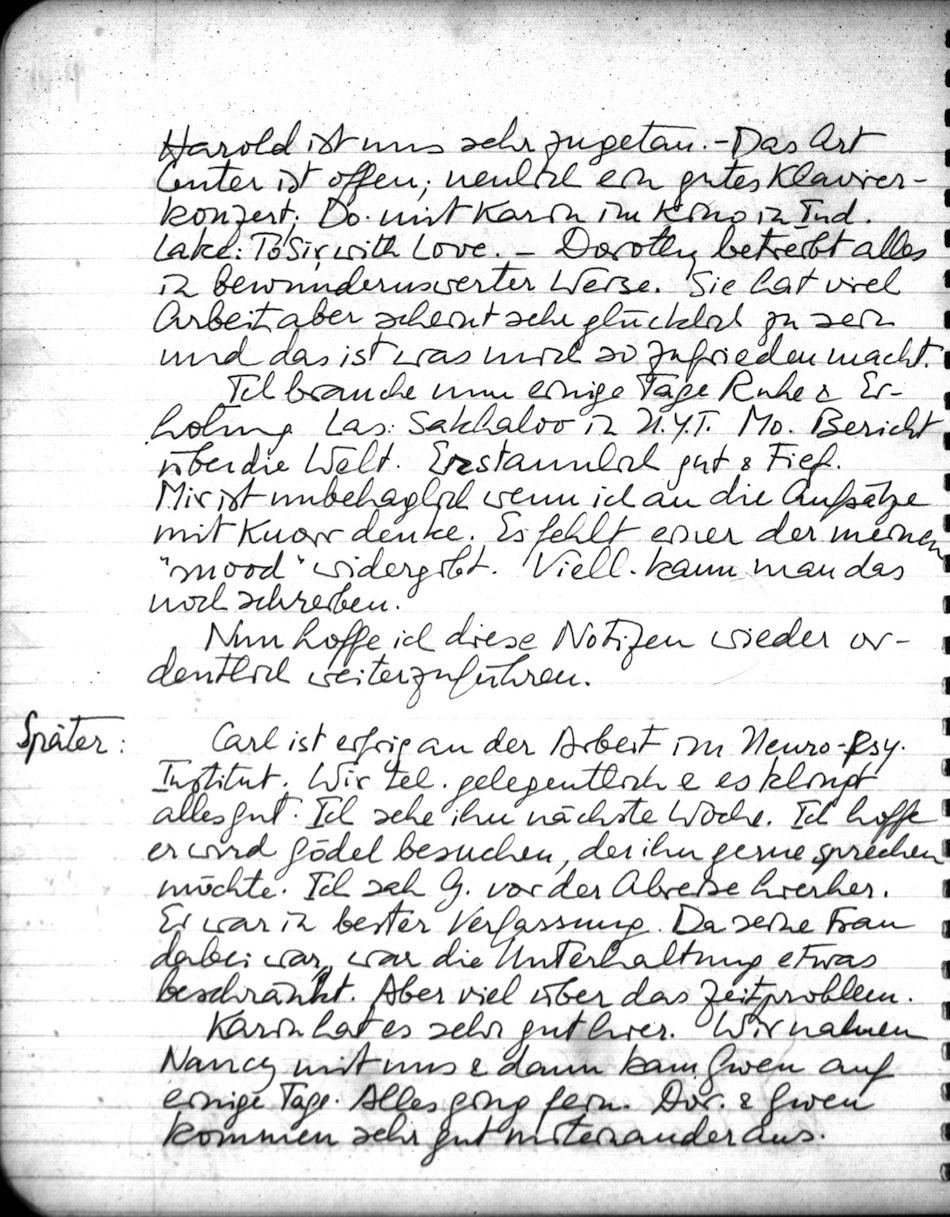 Harold ist uns sehr zugetan. – Das Art
Center ist offen; neulich ein gutes Klavier-
konzert; Do. mit Karin im Kino in Ind.
Lake: To Sir, with Love. – Dorothy betreibt alles
in bewundernswerter Weise. Sie hat viel
Arbeit, aber scheint sehr glücklich zu sein
und das ist was mich so zufrieden macht.
Ich brauche nun einige Tage Ruhe & Er-
holung Las: Sakhalov in N.Y.T. Mo. Bericht
über die Welt. Erstaunlich gut & tief.
Mir ist unbehaglich wenn ich an die Aufsätze
mit Knorr denke. Es fehlt einer der meinen
"mood" widergibt. Viell. kann man das
noch schreiben.
Nun hoffe ich diese Notizen wieder or-
dentlich weiterzuführen.
Später:
Carl ist eifrig an der Arbeit im Neuro-Psy.
Institut. Wir tel. gelegentlich & es klingt
alles gut. Ich sehe ihn nächste Woche. Ich hoffe
er wird Gödel besuchen, der ihn gerne sprechen
möchte. Ich sah G. vor der Abreise hierher.
Er war in bester Verfassung. Da seine Frau
dabei war, war die Unterhaltung etwas
beschränkt. Aber viel über das Zeitproblem.
Karin hat es sehr gut hier. Wir nahmen
Nancy mit uns & dann kam Gwen auf
einige Tage. Alles ging fein. Dor. & Gwen
kommen sehr gut miteinander aus.